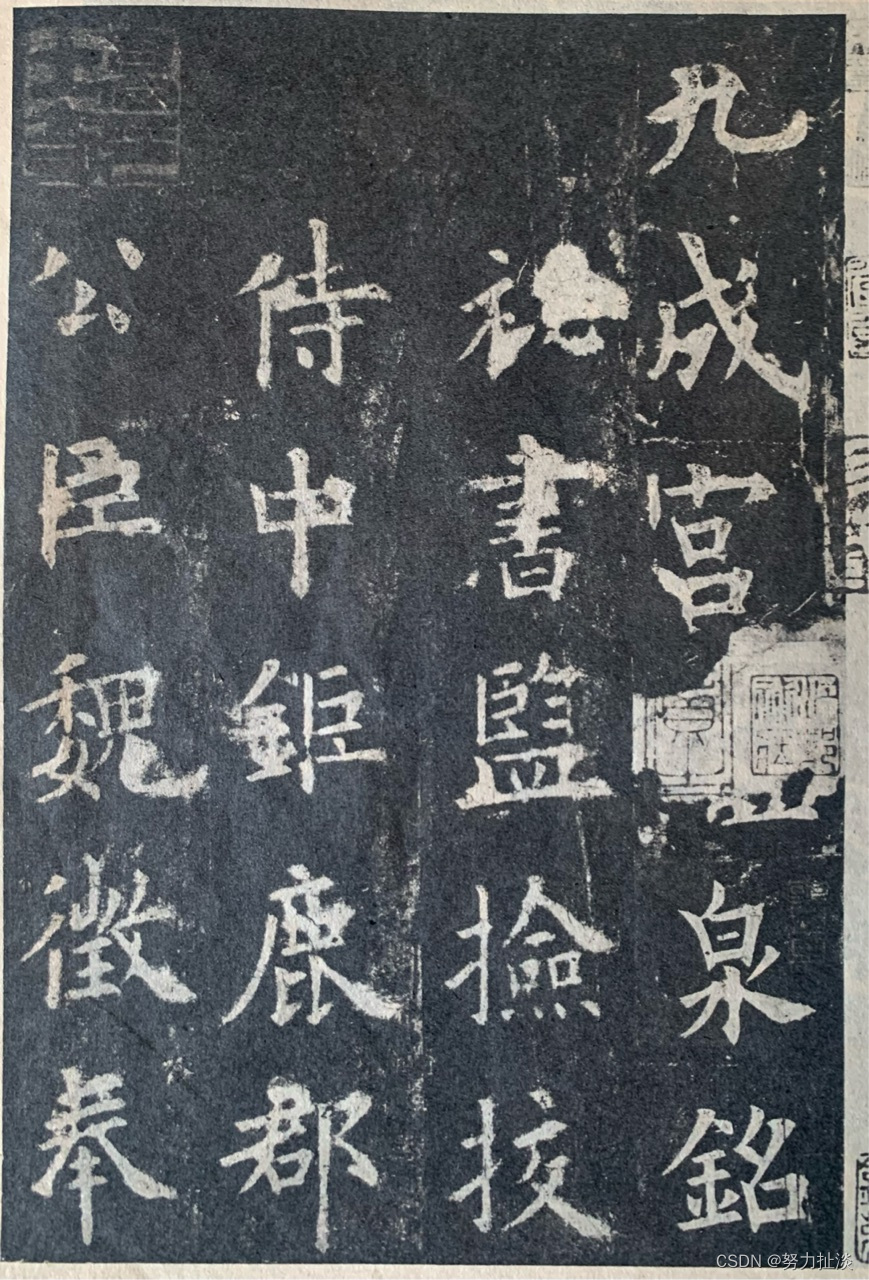 九成宮泉銘
祕書監撿挍
侍中鉅鹿郡
公臣魏徵奉
CSDN @努力扯淡